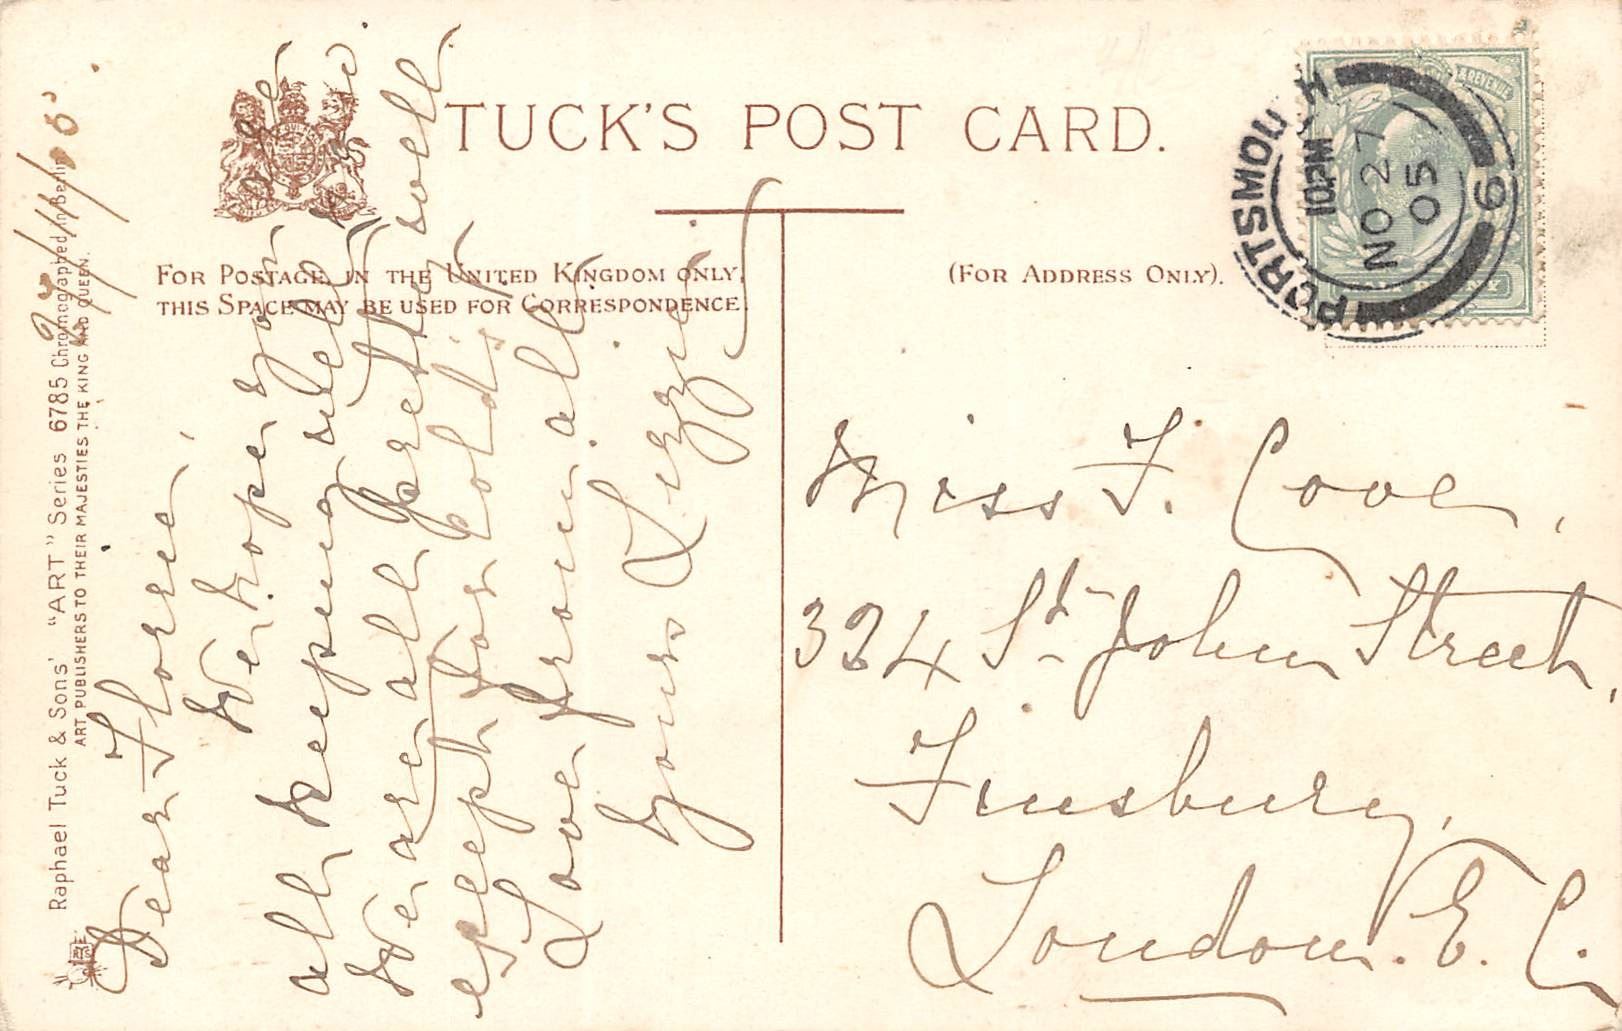 TUCK'S POST CARD.
FOR POSTAGE IN THE UNITED KINGDOM ONLY,
THIS SPACE MAY BE USED FOR CORRESPONDENCE.
(FOR ADDRESS ONLY).
Raphael Tuck & Sons' "ART" Series 6785 Chromographed in Berlin
ART PUBLISHERS TO THEIR MAJESTIES THE KING AND QUEEN.
27/11/05.
Dear Florrie,
We hope you are
all keeping well &
We are all pretty well
except for colds,
Love from all
Yours Lizzie
& REVENUE
PORTSMOUTH
10.PM
NO 27
05
6
Miss F. Cove,
324 St John Street,
Finsbury,
London. E. C.